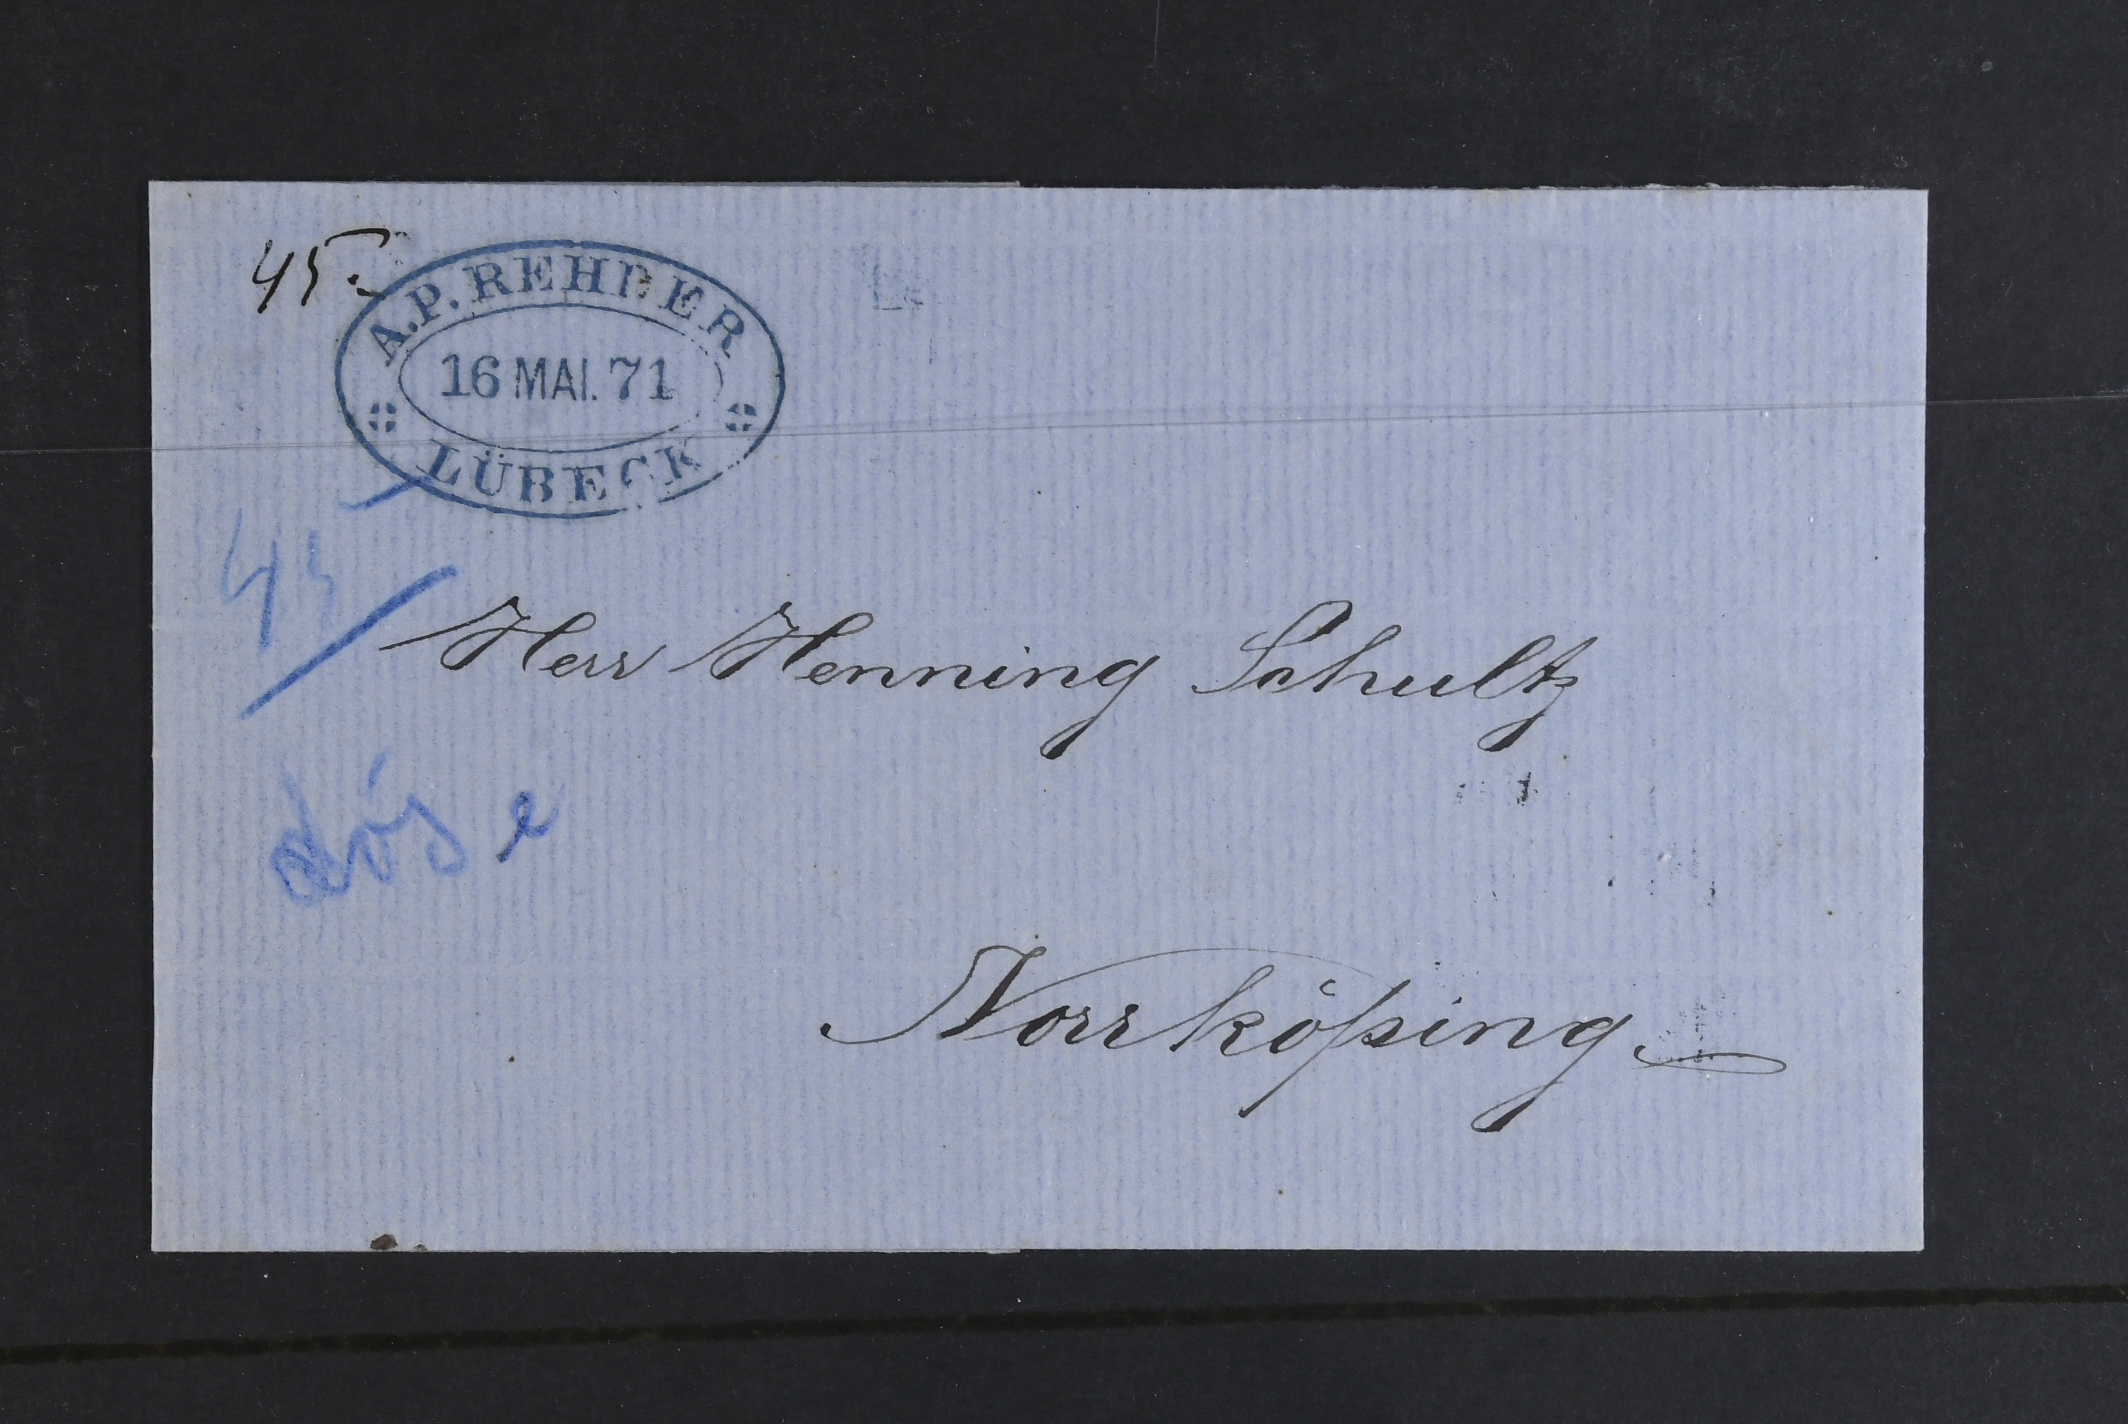 45.
A.P. REHDER
16 MAI. 71
LÜBECK
45
Herr Henning Schultz
Norrköping